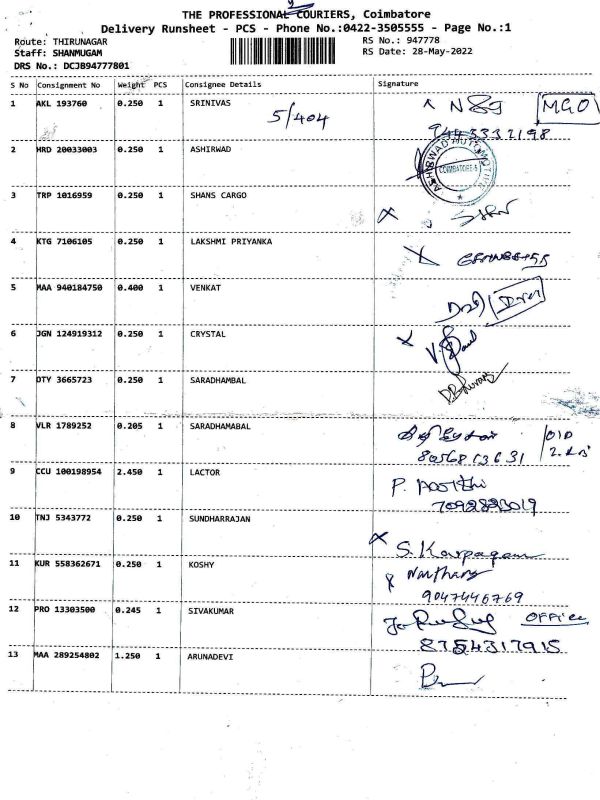 THE PROFESSIONAL COURIERS, Coimbatore
Delivery Runsheet - PCS - Phone No.:0422-3505555 - Page No.:1
Route: THIRUNAGAR RS No.: 947778
Staff: SHANMUGAM RS Date: 28-May-2022
DRS No.: DCJB94777801
S No Consignment No Weight PCS Consignee Details Signature
1 AKL 193760 0.250 1 SRINIVAS MGO
5/404
9443332198
2 HRD 20033003 0.250 1 ASHIRWAD
ASHIRWAD AUTOMOTIVE
COIMBATORE-5
3 TRP 1016959 0.250 1 SHANS CARGO
4 KTG 7106105 0.250 1 LAKSHMI PRIYANKA
5 MAA 940184750 0.400 1 VENKAT
6 JGN 124919312 0.250 1 CRYSTAL
7 OTY 3665723 0.250 1 SARADHAMBAL
8 VLR 1789252 0.205 1 SARADHAMABAL
9 CCU 100198954 2.450 1 LACTOR
10 TNJ 5343772 0.250 1 SUNDHARRAJAN
S. Karpagam
11 KUR 558362671 0.250 1 KOSHY
9047446769
12 PRO 13303500 0.245 1 SIVAKUMAR OFFICE
8754317915
13 MAA 289254802 1.250 1 ARUNADEVI